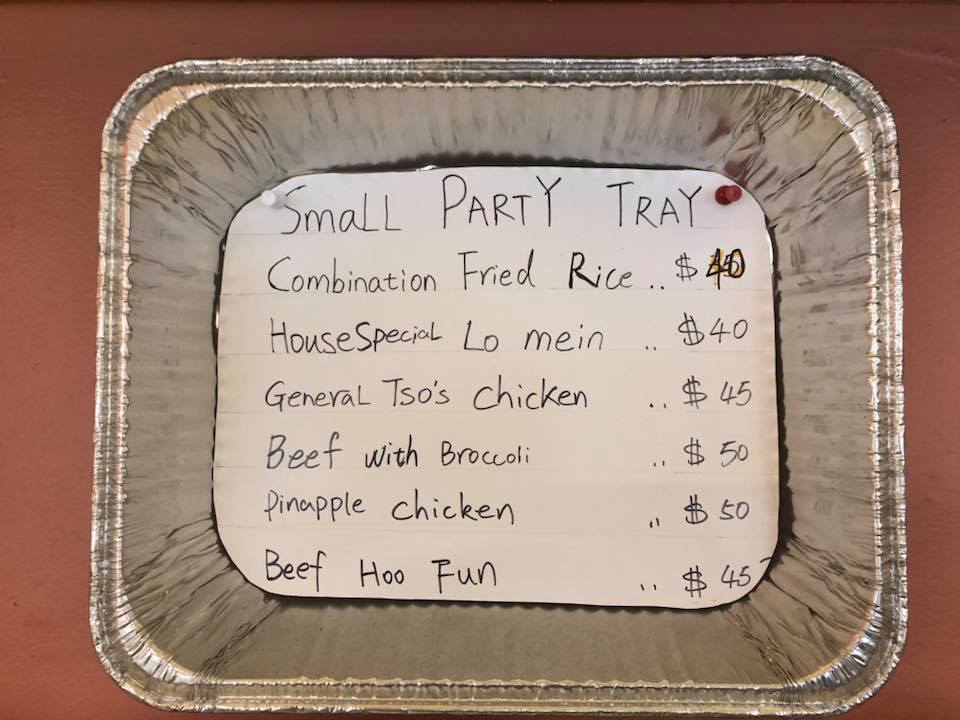 Small PARTY TRAY
Combination Fried Rice .. $ 40
House Special Lo mein .. $40
General Tso's chicken .. $ 45
Beef with Broccoli .. $ 50
Pinapple chicken .. $ 50
Beef Hoo Fun .. $ 45